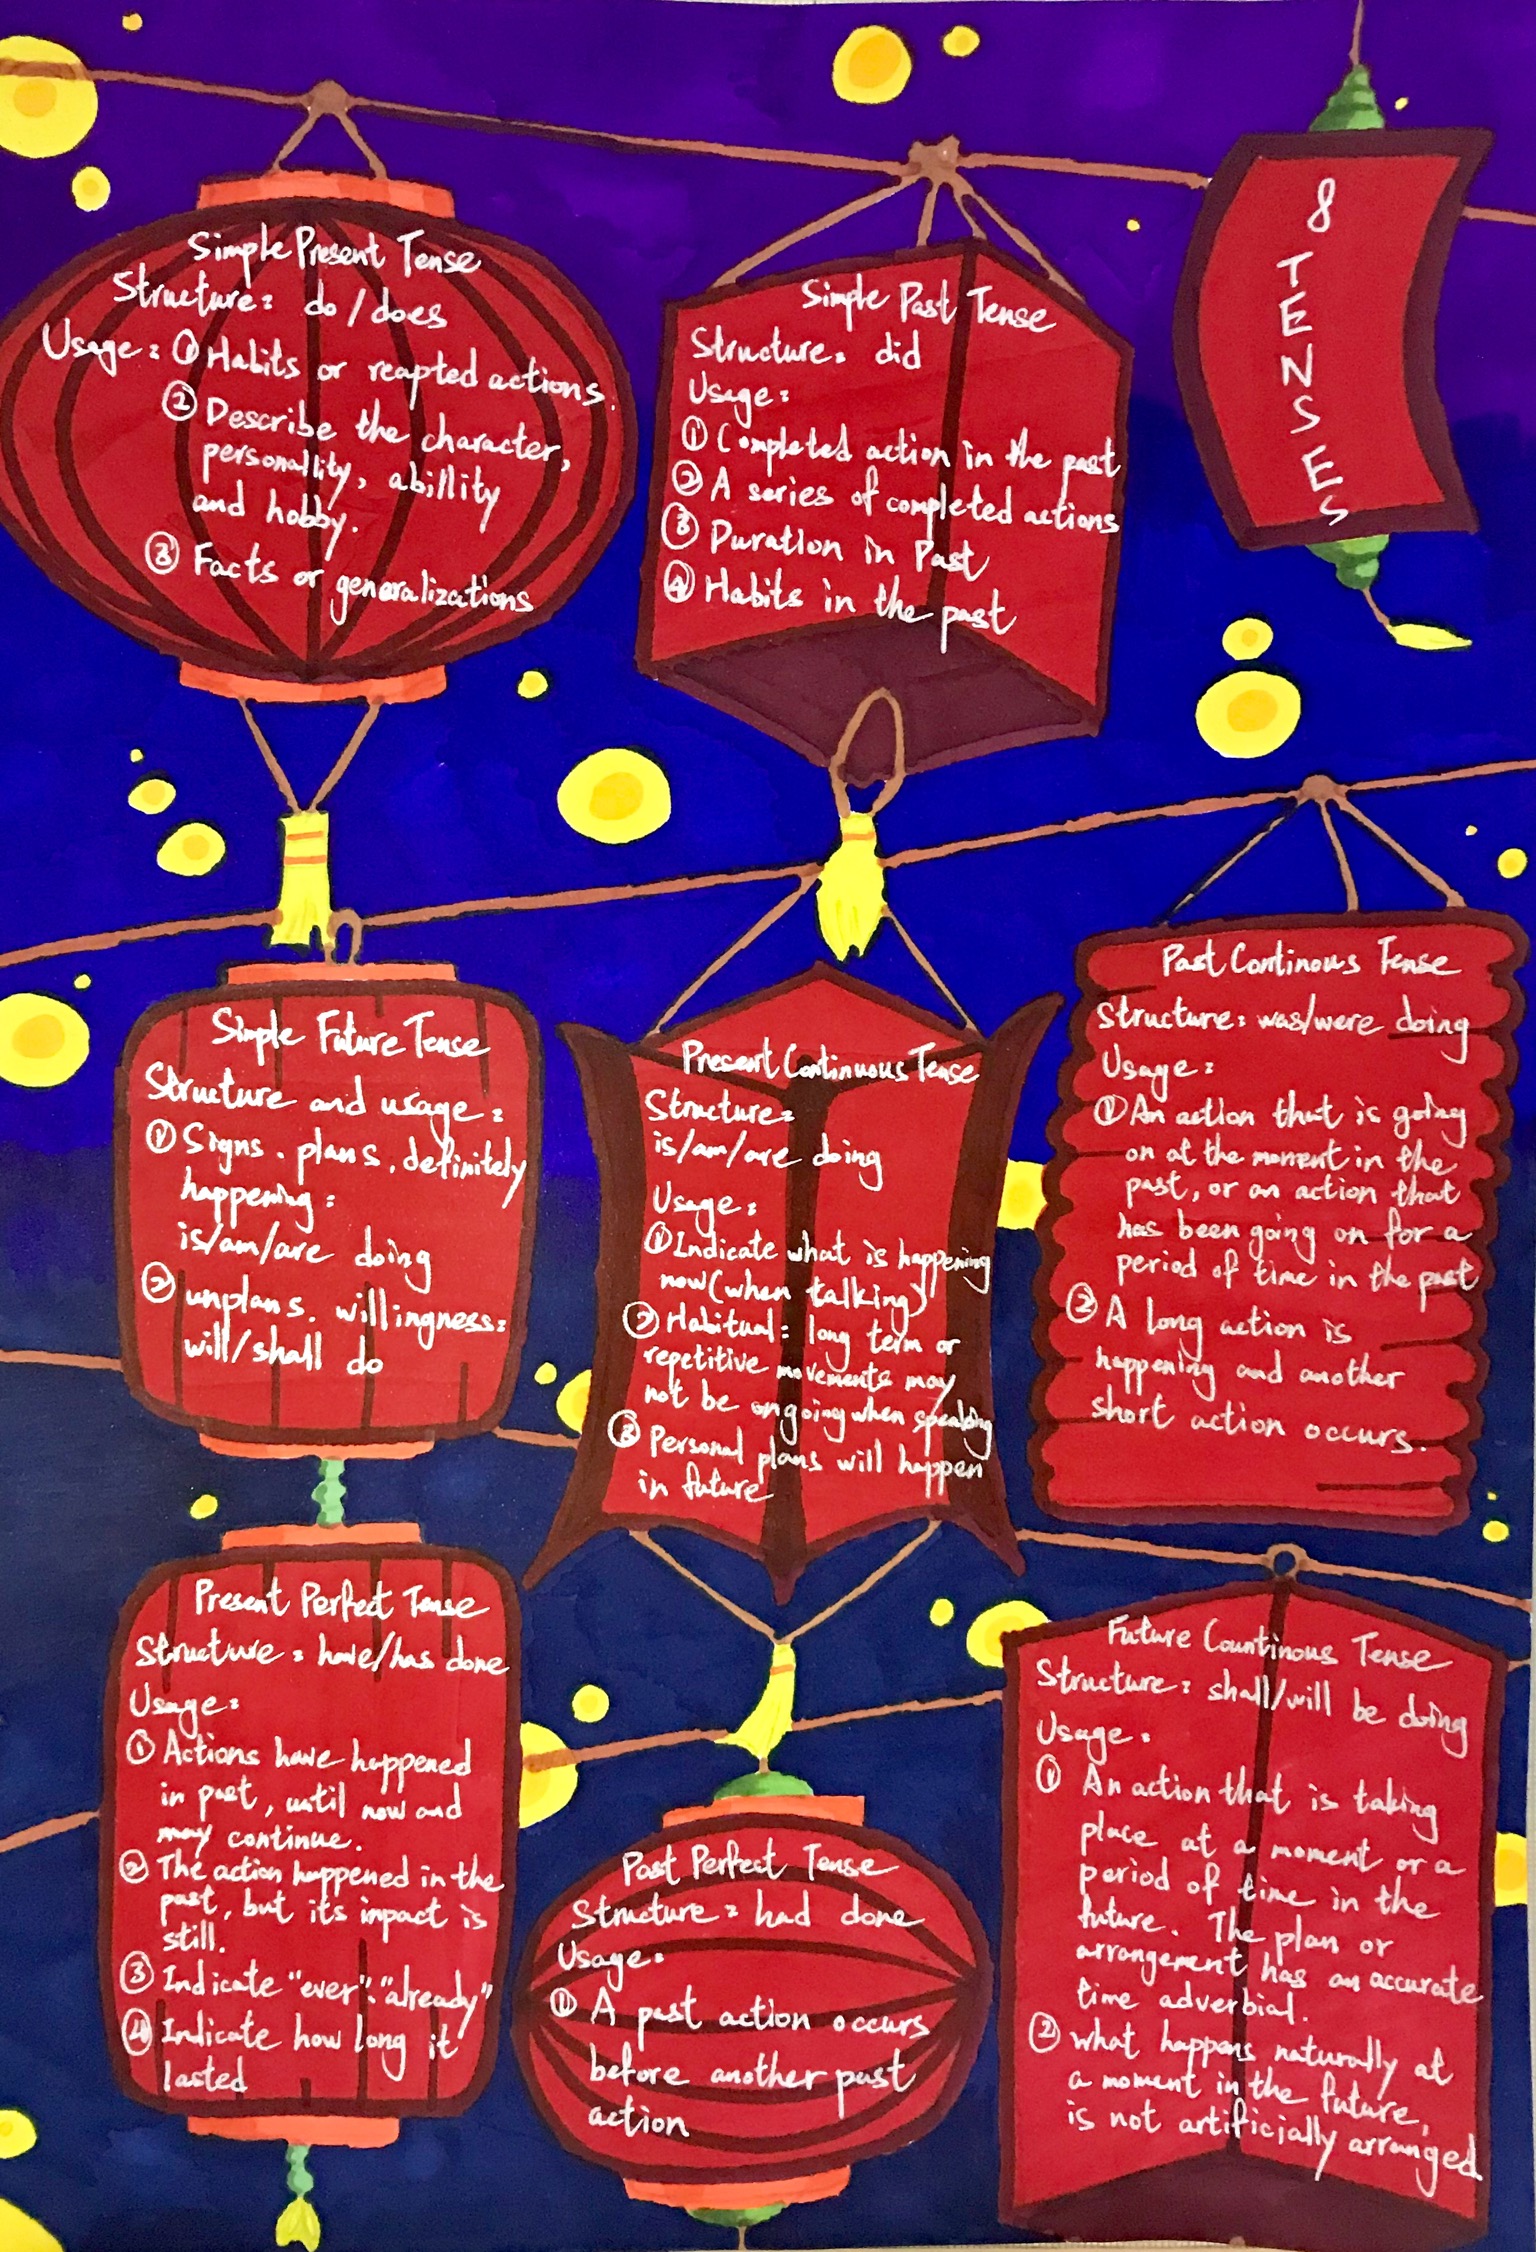 8
TENSES
Simple Present Tense
Structure: do/does
Usage: ① Habits or reapted actions.
② Describe the character,
personallity, abillity
and hobby.
③ Facts or generalizations
Simple Past Tense
Structure: did
Usage:
① Completed action in the past
② A series of completed actions
③ Duration in Past
④ Habits in the past
Simple Future Tense
Structure and usage:
① Signs. plans. definitely
happening:
is/am/are doing
② unplans. willingness:
will/shall do
Present Continuous Tense
Structure:
is/am/are doing
Usage:
① Indicate what is happening
now(when talking)
② Habitual: long term or
repetitive movements may
not be ongoing when speaking
③ Personal plans will happen
in future
Past Continous Tense
Structure: was/were doing
Usage:
① An action that is going
on at the moment in the
past, or an action that
has been going on for a
period of time in the past
② A long action is
happening and another
short action occurs.
Present Perfect Tense
Structure: have/has done
Usage:
① Actions have happened
in past, until now and
may continue.
② The action happened in the
past, but its impact is
still.
③ Indicate "ever"."already"
④ Indicate how long it
lasted
Past Perfect Tense
Structure: had done
Usage:
① A past action occurs
before another past
action
Future Countinous Tense
Structure: shall/will be doing
Usage:
① An action that is taking
place at a moment or a
period of time in the
future. The plan or
arrangement has an accurate
time adverbial.
② what happens naturally at
a moment in the future,
is not artificially arranged.